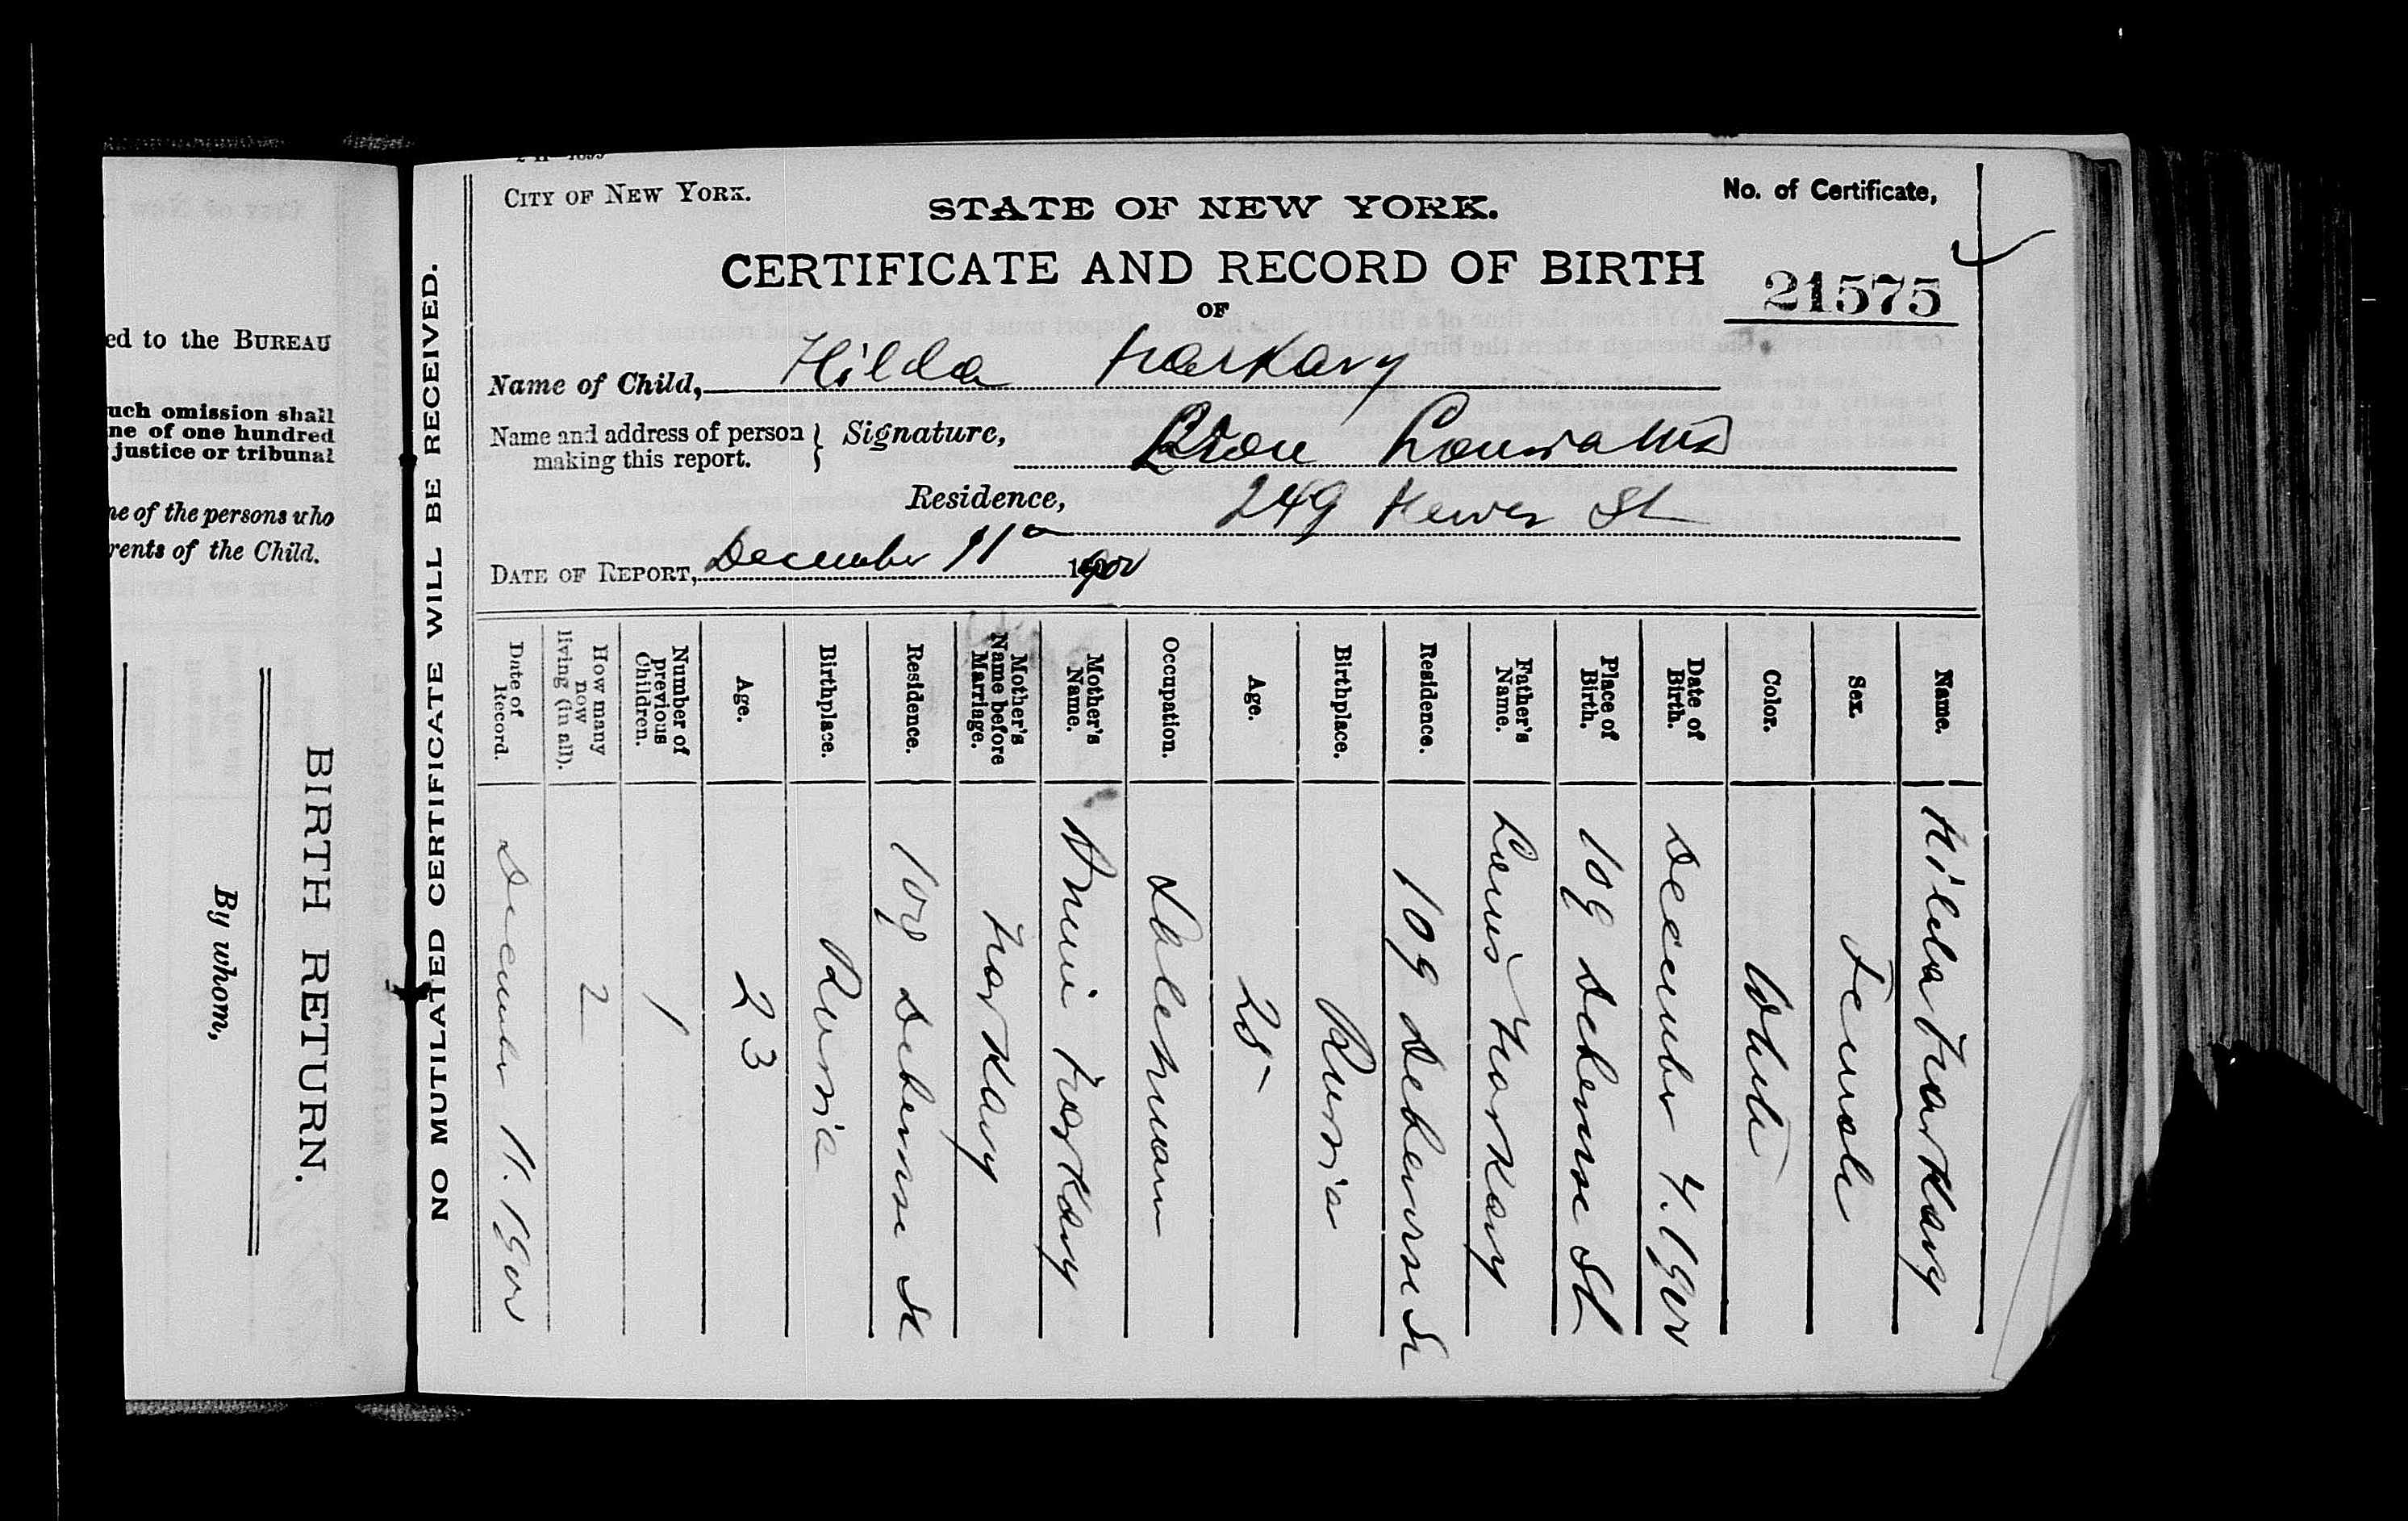 ed to the BUREAU
uch omission shall
ne of one hundred
justice or tribunal
ne of the persons who
rents of the Child.
BIRTH RETURN.
By whom,
NO MUTILATED CERTIFICATE WILL BE RECEIVED.
CITY OF NEW YORK.
STATE OF NEW YORK.
No. of Certificate,
CERTIFICATE AND RECORD OF BIRTH
21575
OF
Name of Child, Hilda Harkavy
Name and address of person making this report. } Signature,
Residence, 249 Hewes St
DATE OF REPORT, December 11 1902
Name. Hilda Harkavy
Sex. Female
Color. White
Date of Birth. December 4. 1902
Place of Birth. 109 St
Father's Name. Louis Harkavy
Residence. 109 St
Birthplace. Russia
Age. 25
Occupation. Salesman
Mother's Name. Annie Harkavy
Mother's Name before Marriage. Harkavy
Residence. 109 St
Birthplace. Russia
Age. 23
Number of previous Children. 1
How many now living (in all). 2
Date of Record. December 11. 1902